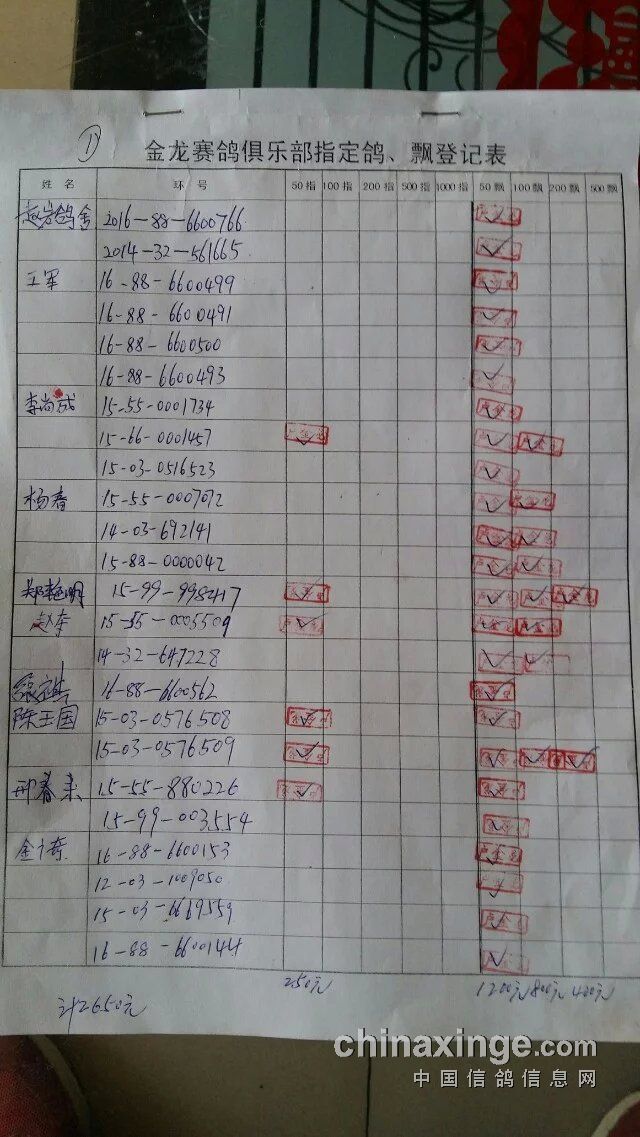 ①
金龙赛鸽俱乐部指定鸽、飘登记表
姓 名 环 号 50指 100指 200指 500指 1000指 50飘 100飘 200飘 500飘
赵岩鸽舍 2016-88-6600766
2014-32-561665
王军 16-88-6600499
16-88-6600491
16-88-6600500
16-88-6600493
李尚成 15-55-0001734
15-66-0001457
15-03-0516523
杨春 15-55-0007072
14-03-692141
15-88-0000042
郑艳明 15-99-998247
赵奎 15-55-0005509
14-32-647228
16-88-6600562
陈玉国 15-03-0576508
15-03-0576509
邢春来 15-55-880226
15-99-003554
16-88-6600153
12-03-1009050
15-03-6669559
16-88-6600144
250元 1200元 800元 400元
计2650元
chinaxinge.com
中国信鸽信息网